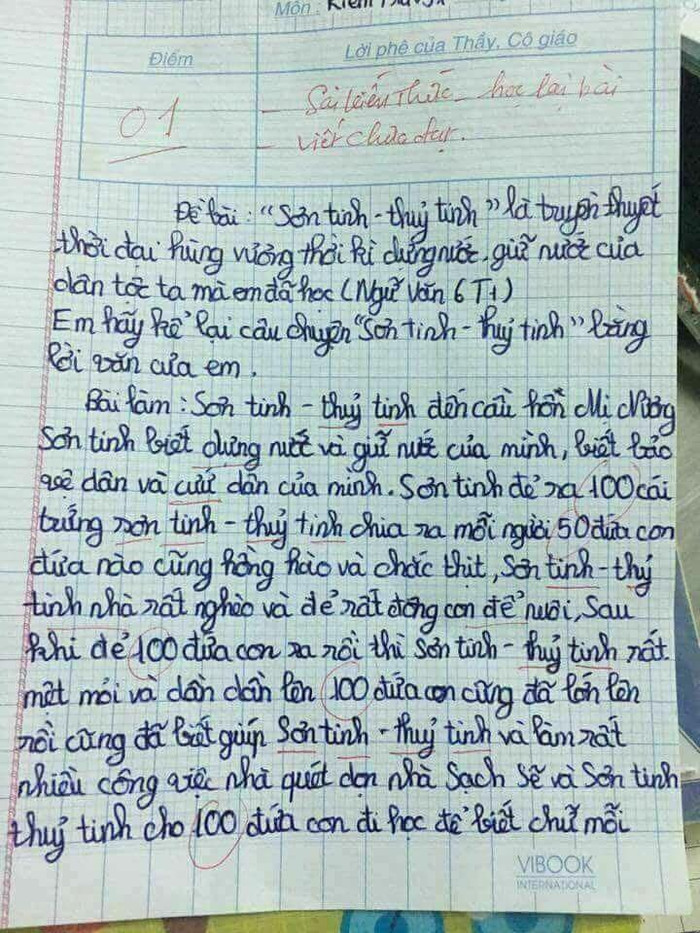 Môn :
Điểm
Lời phê của Thầy, Cô giáo
01
- Sai kiến thức - học lại bài
- viết chưa đạt.
Đề bài : "Sơn tinh - thuỷ tinh" là truyền thuyết
thời đại hùng vương thời kì dựng nước, giữ nước của
dân tộc ta mà em đã học (Ngữ văn 6 T1)
Em hãy kể lại câu chuyện "Sơn tinh - thuỷ tinh" bằng
lời văn của em.
Bài làm : Sơn tinh - thuỷ tinh đến cầu hôn Mi Nương
Sơn tinh biết dựng nước và giữ nước của mình, biết bảo
vệ dân và cứu dân của mình. Sơn tinh đẻ ra 100 cái
trứng sơn tinh - thuỷ tinh chia ra mỗi người 50 đứa con
đứa nào cũng hồng hào và chắc thịt, Sơn tinh - thuỷ
tinh nhà rất nghèo và đẻ rất đông con để nuôi, Sau
khi đẻ 100 đứa con ra rồi thì Sơn tinh - thuỷ tinh rất
mệt mỏi và dần dần lên 100 đứa con cũng đã lớn lên
rồi cũng đã biết giúp Sơn tinh - thuỷ tinh và làm rất
nhiều công việc nhà quét dọn nhà sạch sẽ và Sơn tinh
thuỷ tinh cho 100 đứa con đi học để biết chữ mỗi
VIBOOK
INTERNATIONAL